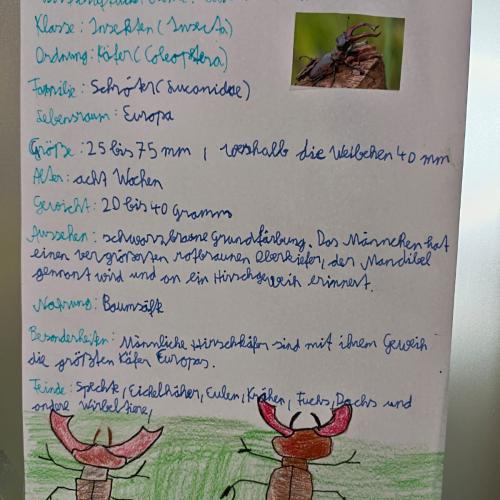 Klasse: Insekten (Insecta)
Ordnung: Käfer (Coleoptera)
Familie: Schröter (Lucanidae)
Lebensraum: Europa
Größe: 25 bis 75 mm, weshalb die Weibchen 40 mm
Alter: acht Wochen
Gewicht: 20 bis 40 Gramm
Aussehen: schwarzbraune Grundfärbung. Das Männchen hat
einen vergrösserten rotbraunen Oberkiefer, der Mandibel
genannt wird und an ein Hirschgeweih erinnert.
Nahrung: Baumsäfte
Besonderheiten: Männliche Hirschkäfer sind mit ihrem Geweih
die größten Käfer Europas.
Feinde: Spechte, Eichelhäher, Eulen, Krähen, Fuchs, Dachs und
andere Wirbeltiere,